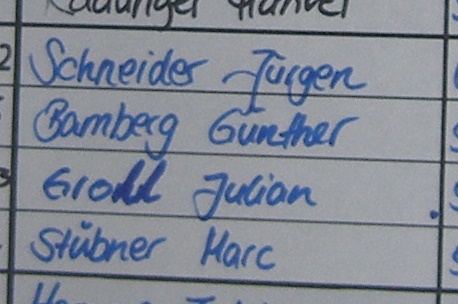 Schneider Jürgen
Bamberg Günther
Julian
Stübner Marc